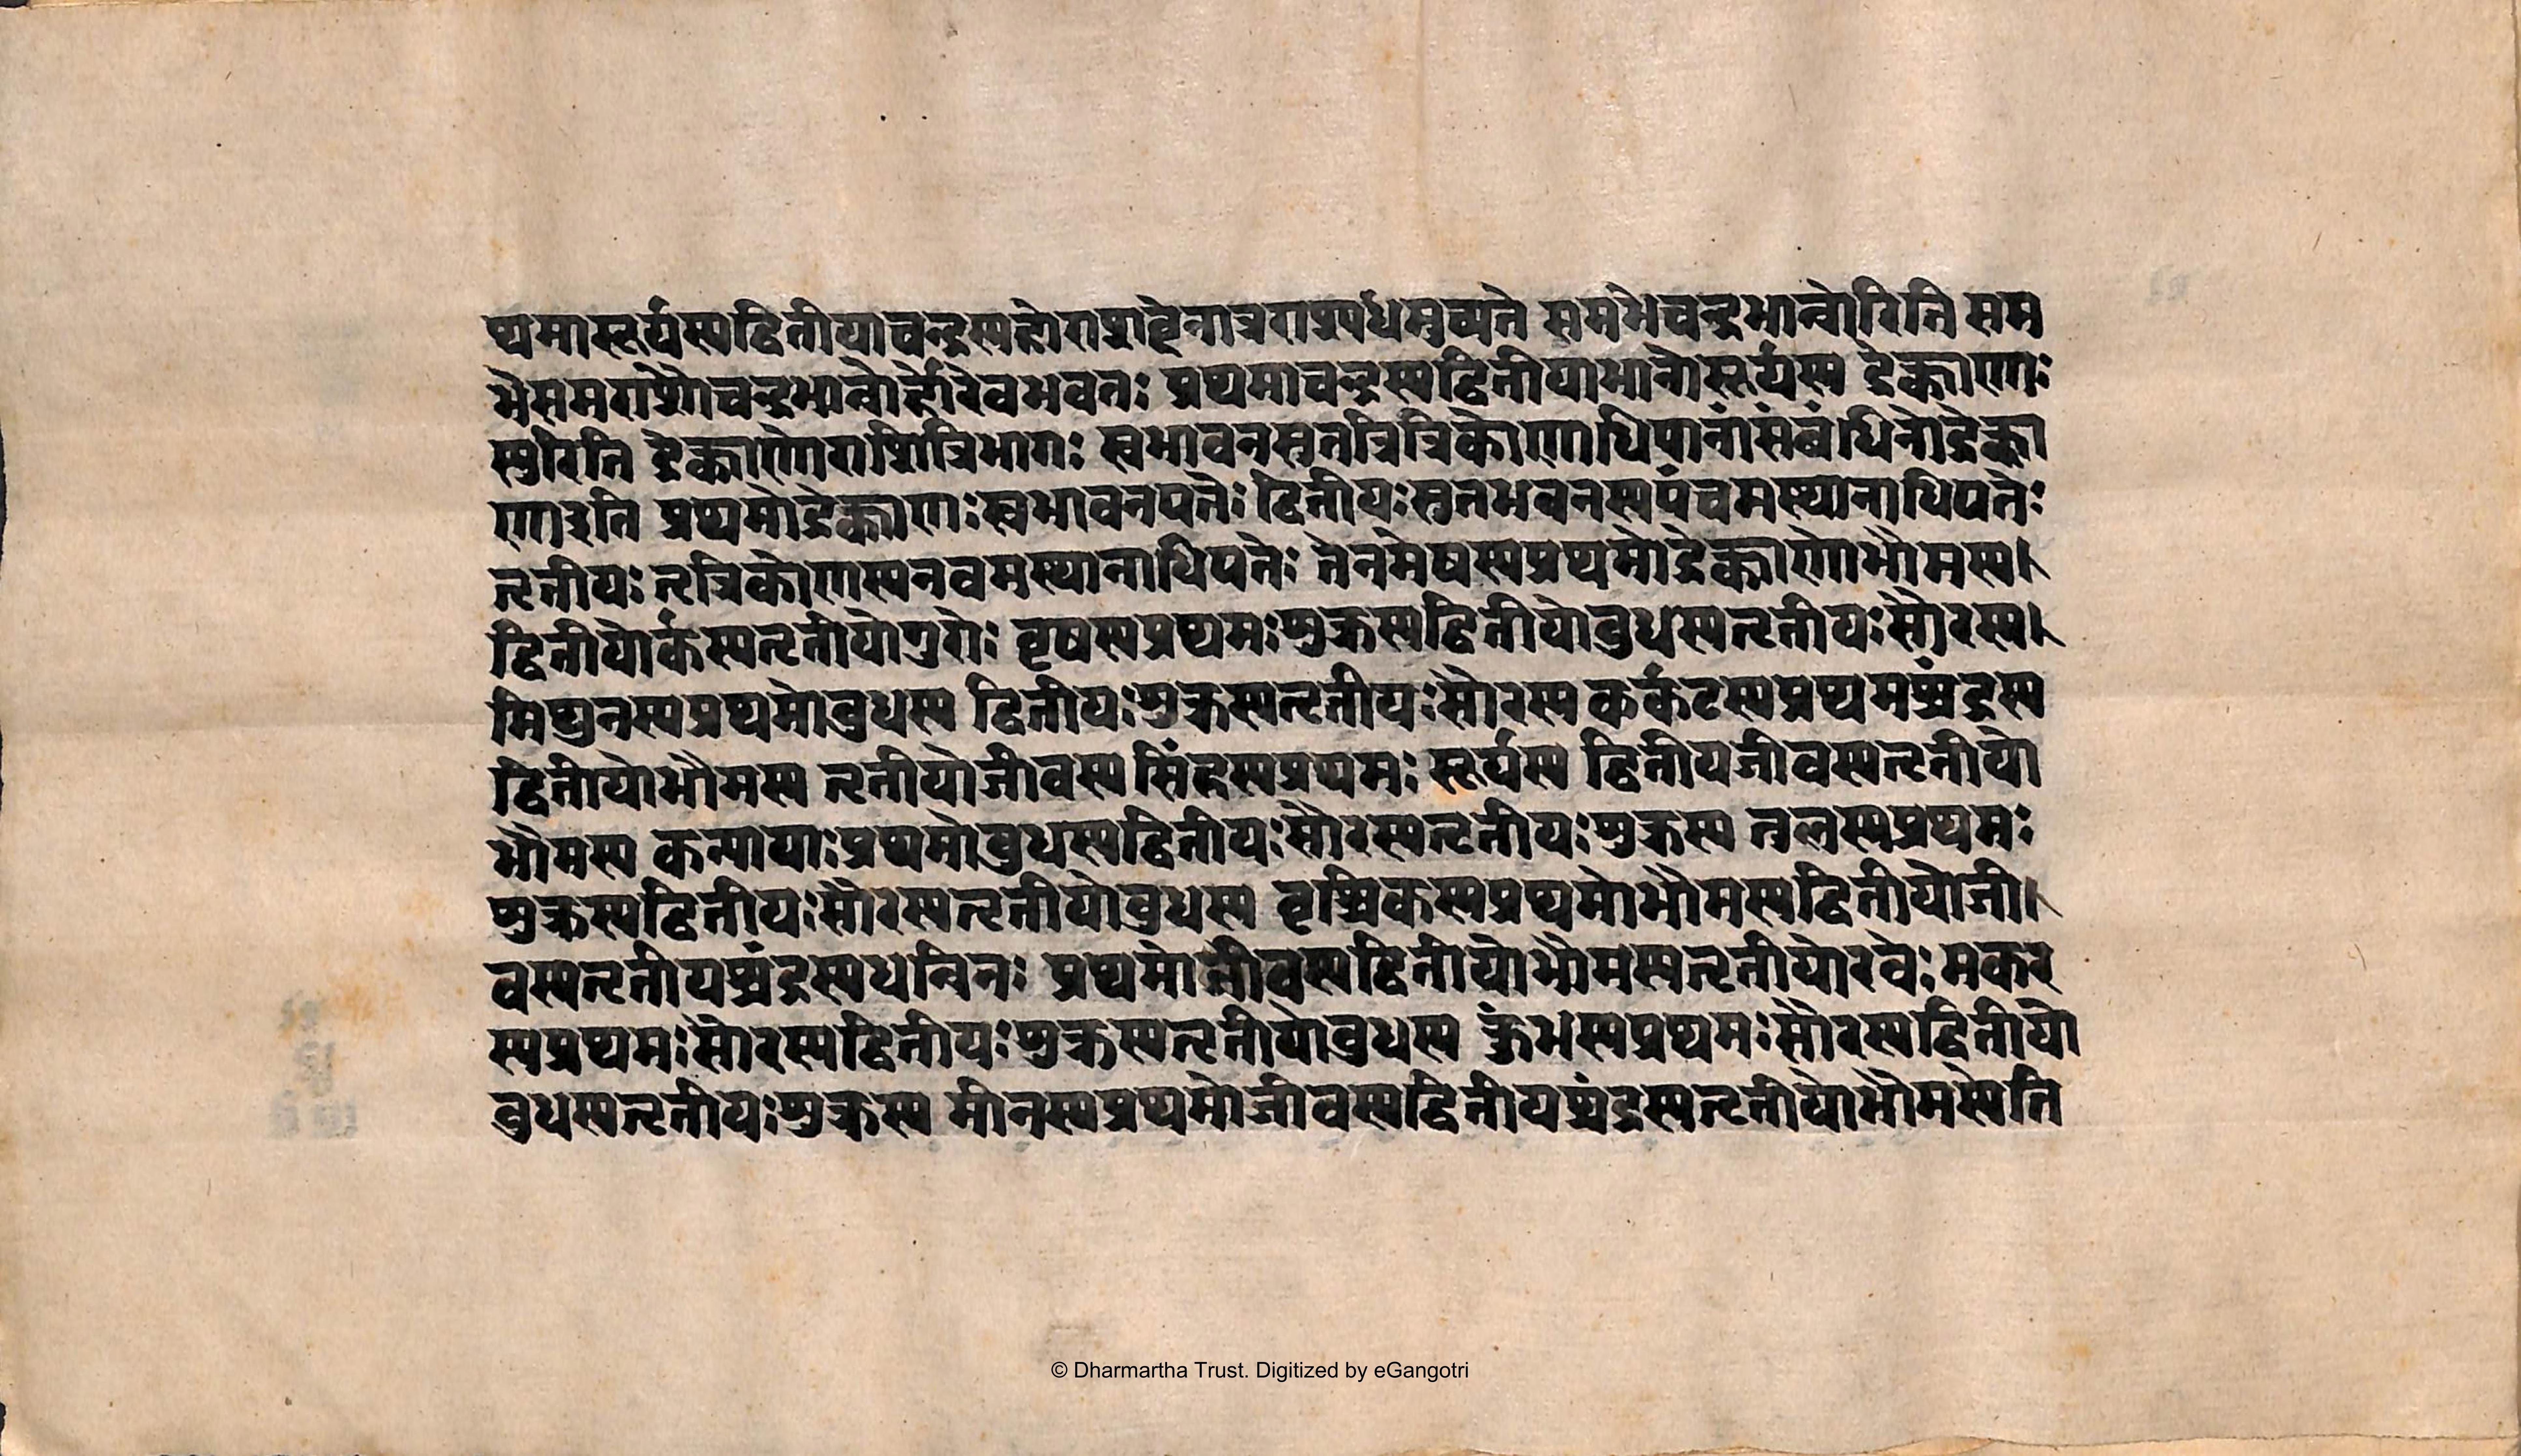 थमासूर्यस्यद्वितीयाचन्द्रस्यहोराशब्देनात्रराश्यर्धमुच्यते समभेचन्द्रभान्वोरिति सम
भेसमराशौचन्द्रभान्वोर्होरेवभवतः प्रथमाचन्द्रस्यद्वितीयाभानोःसूर्यस्य द्रेक्काणाः
स्युरिति द्रेक्काणोराशित्रिभागः स्वभावनसुतत्रित्रिकोणाधिपानांसंबंधिनोद्रेक्का
णाइति प्रथमोद्रेक्काणःस्वभावनपतेः द्वितीयःसुतभवनस्यपंचमस्थानाधिपतेः
तृतीयःतृत्रिकोणस्यनवमस्थानाधिपतेः तेनमेषस्यप्रथमोद्रेक्काणोभौमस्य।
द्वितीयोर्कस्यतृतीयोगुरोः वृषस्यप्रथमःशुक्रस्यद्वितीयोबुधस्यतृतीयःसौरस्य।
मिथुनस्यप्रथमोबुधस्य द्वितीयःशुक्रस्यतृतीयःसौरस्य कर्कटस्यप्रथमश्चंद्रस्य
द्वितीयोभौमस्य तृतीयोजीवस्य सिंहस्यप्रथमः सूर्यस्य द्वितीयजीवस्यतृतीयो
भौमस्य कन्यायाःप्रथमोबुधस्यद्वितीयःसौरस्यतृतीयःशुक्रस्य तुलस्यप्रथमः
शुक्रस्यद्वितीयःसौरस्यतृतीयोबुधस्य वृश्चिकस्यप्रथमोभौमस्यद्वितीयोजी।
वस्यतृतीयश्चंद्रस्यधन्विनः प्रथमोजीवस्यद्वितीयोभौमस्यतृतीयोरवेः मकर
स्यप्रथमःसौरस्यद्वितीयःशुक्रस्यतृतीयोबुधस्य कुंभस्यप्रथमःसौरस्यद्वितीयो
बुधस्यतृतीयःशुक्रस्य मीनस्यप्रथमोजीवस्यद्वितीयश्चंद्रस्यतृतीयोभौमस्येति
© Dharmartha Trust. Digitized by eGangotri